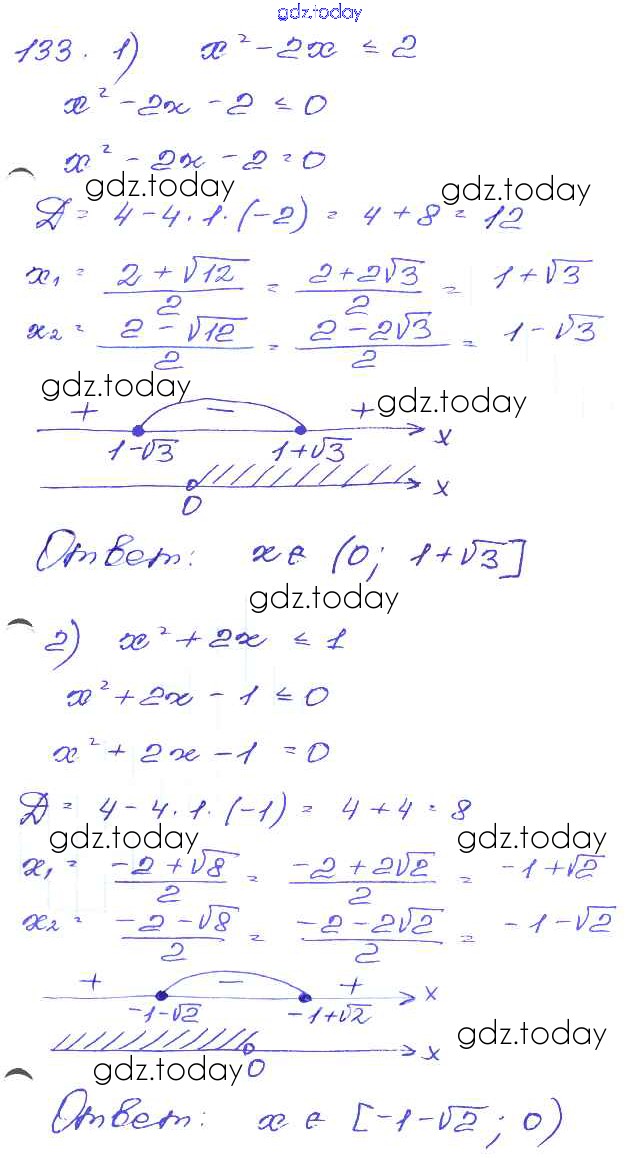 gdz.today
133. 1) x² - 2x ≤ 2
x² - 2x - 2 ≤ 0
x² - 2x - 2 = 0
gdz.today gdz.today
Д = 4 - 4·1·(-2) = 4 + 8 = 12
x₁ = (2 + √12)/2 = (2 + 2√3)/2 = 1 + √3
x₂ = (2 - √12)/2 = (2 - 2√3)/2 = 1 - √3
gdz.today gdz.today
+ − +
1-√3 1+√3 x
0 x
Ответ: x ∈ (0; 1+√3]
gdz.today
2) x² + 2x ≤ 1
x² + 2x - 1 ≤ 0
x² + 2x - 1 = 0
Д = 4 - 4·1·(-1) = 4 + 4 = 8
gdz.today gdz.today
x₁ = (-2 + √8)/2 = (-2 + 2√2)/2 = -1 + √2
x₂ = (-2 - √8)/2 = (-2 - 2√2)/2 = -1 - √2
+ − +
-1-√2 -1+√2 x
gdz.today
0 x
gdz.today
Ответ: x ∈ [-1-√2; 0)